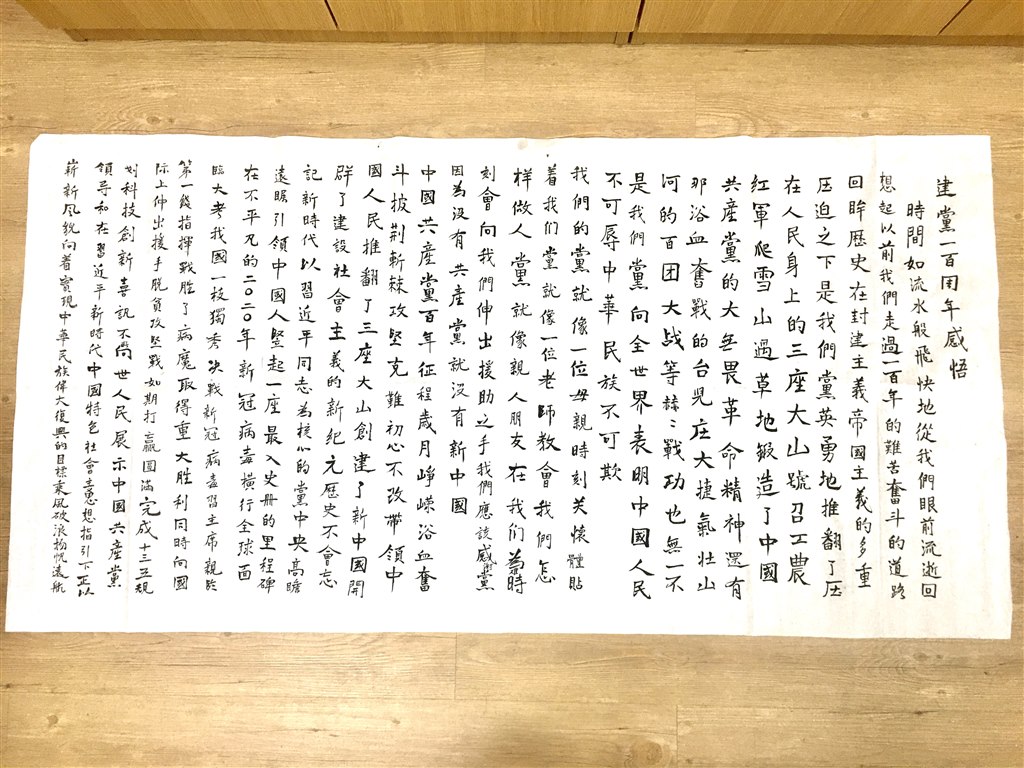 建黨一百周年感悟
時間如流水般飛快地從我們眼前流逝回
想起以前我們走過一百年的難苦奮斗的道路
回眸歷史在封建主義帝國主義的多重
压迫之下是我們黨英勇地推翻了压
在人民身上的三座大山號召工農
紅軍爬雪山過草地鍛造了中國
共產黨的大無畏革命精神還有
那浴血奮戰的台児庄大捷氣壮山
河的百团大战等赫赫戰功也無一不
是我們黨向全世界表明中國人民
不可辱中華民族不可欺
我們的黨就像一位母親時刻关懷體貼
着我们黨就像一位老師教會我們怎
樣做人黨就像親人朋友在我们
刻會向我們伸出援助之手我們應該感謝黨
因為沒有共產黨就沒有新中國
中國共產黨百年征程歲月崢嶸浴血奮
斗披荆斬棘攻堅克難初心不改帶領中
國人民推翻了三座大山創建了新中國開
群了建設社會主義的新纪元歷史不會忘
記新時代以習近平同志為核心的黨中央高瞻
遠矚引領中國人堅起一座最入史册的里程碑
在不平凡的二〇二〇年新冠病毒横行全球面
臨大考我國一枝獨秀决戰新冠病毒習主席親臨
第一錢指揮戰胜了病魔取得重大胜利同時向國
际上伸出援手脫貧攻堅戰如期打贏圆滿完成十三五規
划科技創新喜訊不斷世人民展示中國共產黨
領导和在習近平新時代中國特色社會主義思想指引下正以
嶄新风貌向着實現中華民族偉大復興的目標乘風破浪揚帆遠航